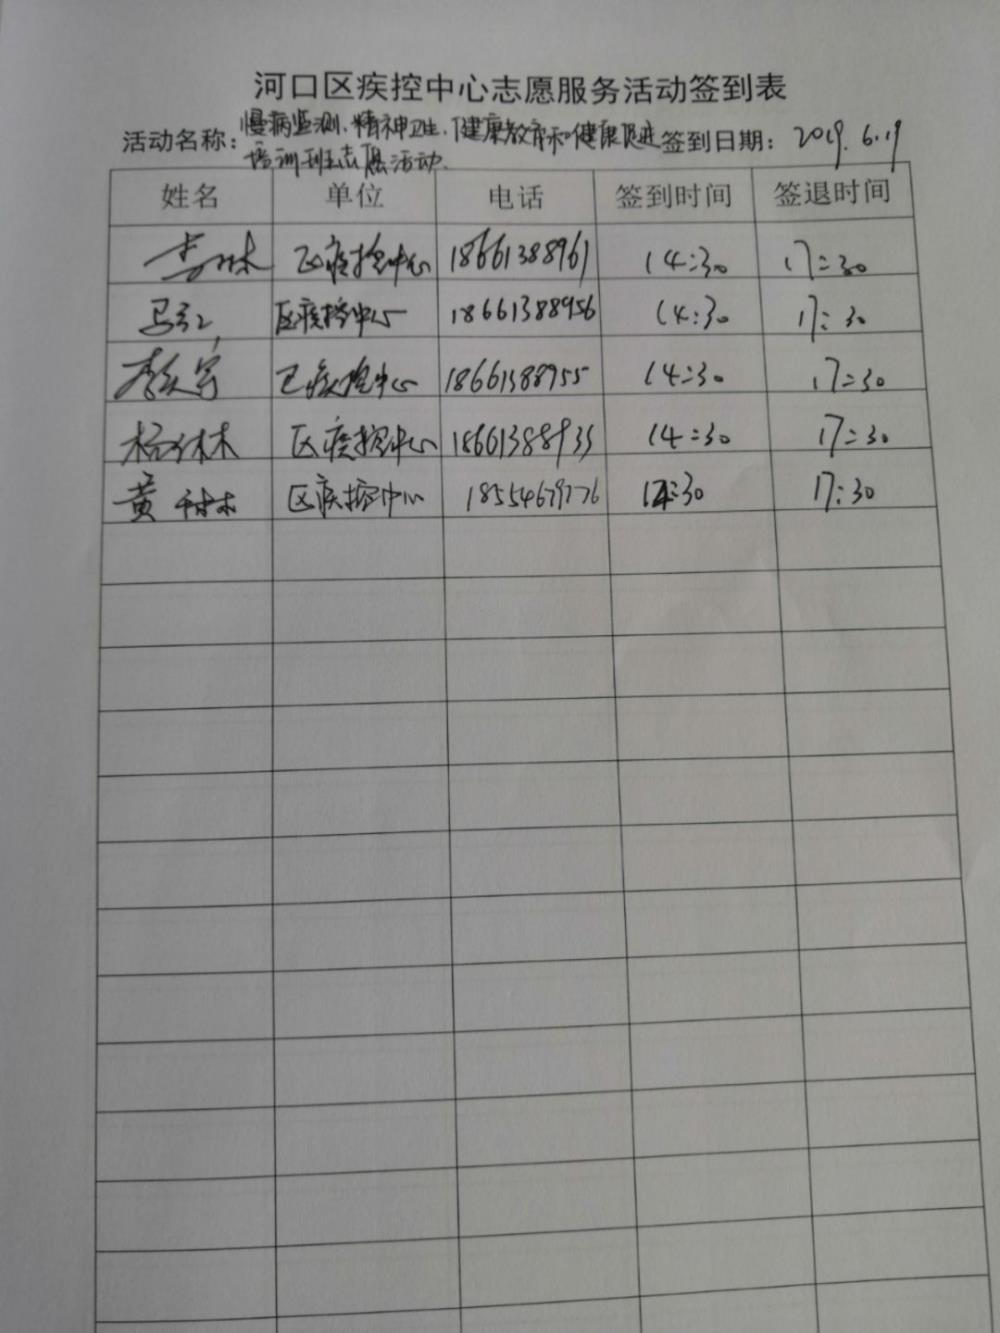 河口区疾控中心志愿服务活动签到表
活动名称：慢病监测、精神卫生、健康教育和健康促进 签到日期：2019.6.19
培训班志愿活动
姓名 单位 电话 签到时间 签退时间
区疾控中心 18661388961 14:30 17:30
区疾控中心 18661388956 14:30 17:30
区疾控中心 18661388955 14:30 17:30
杨林林 区疾控中心 18661388935 14:30 17:30
黄树林 区疾控中心 18554679776 14:30 17:30